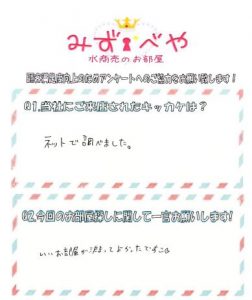 みずべや
水商売のお部屋
顧客満足度向上のためアンケートへのご協力をお願い致します!
Q1.当社にご来店されたキッカケは?
ネットで調べました。
Q2.今回のお部屋探しに関して一言お願いします!
いいお部屋が決まってよかったです